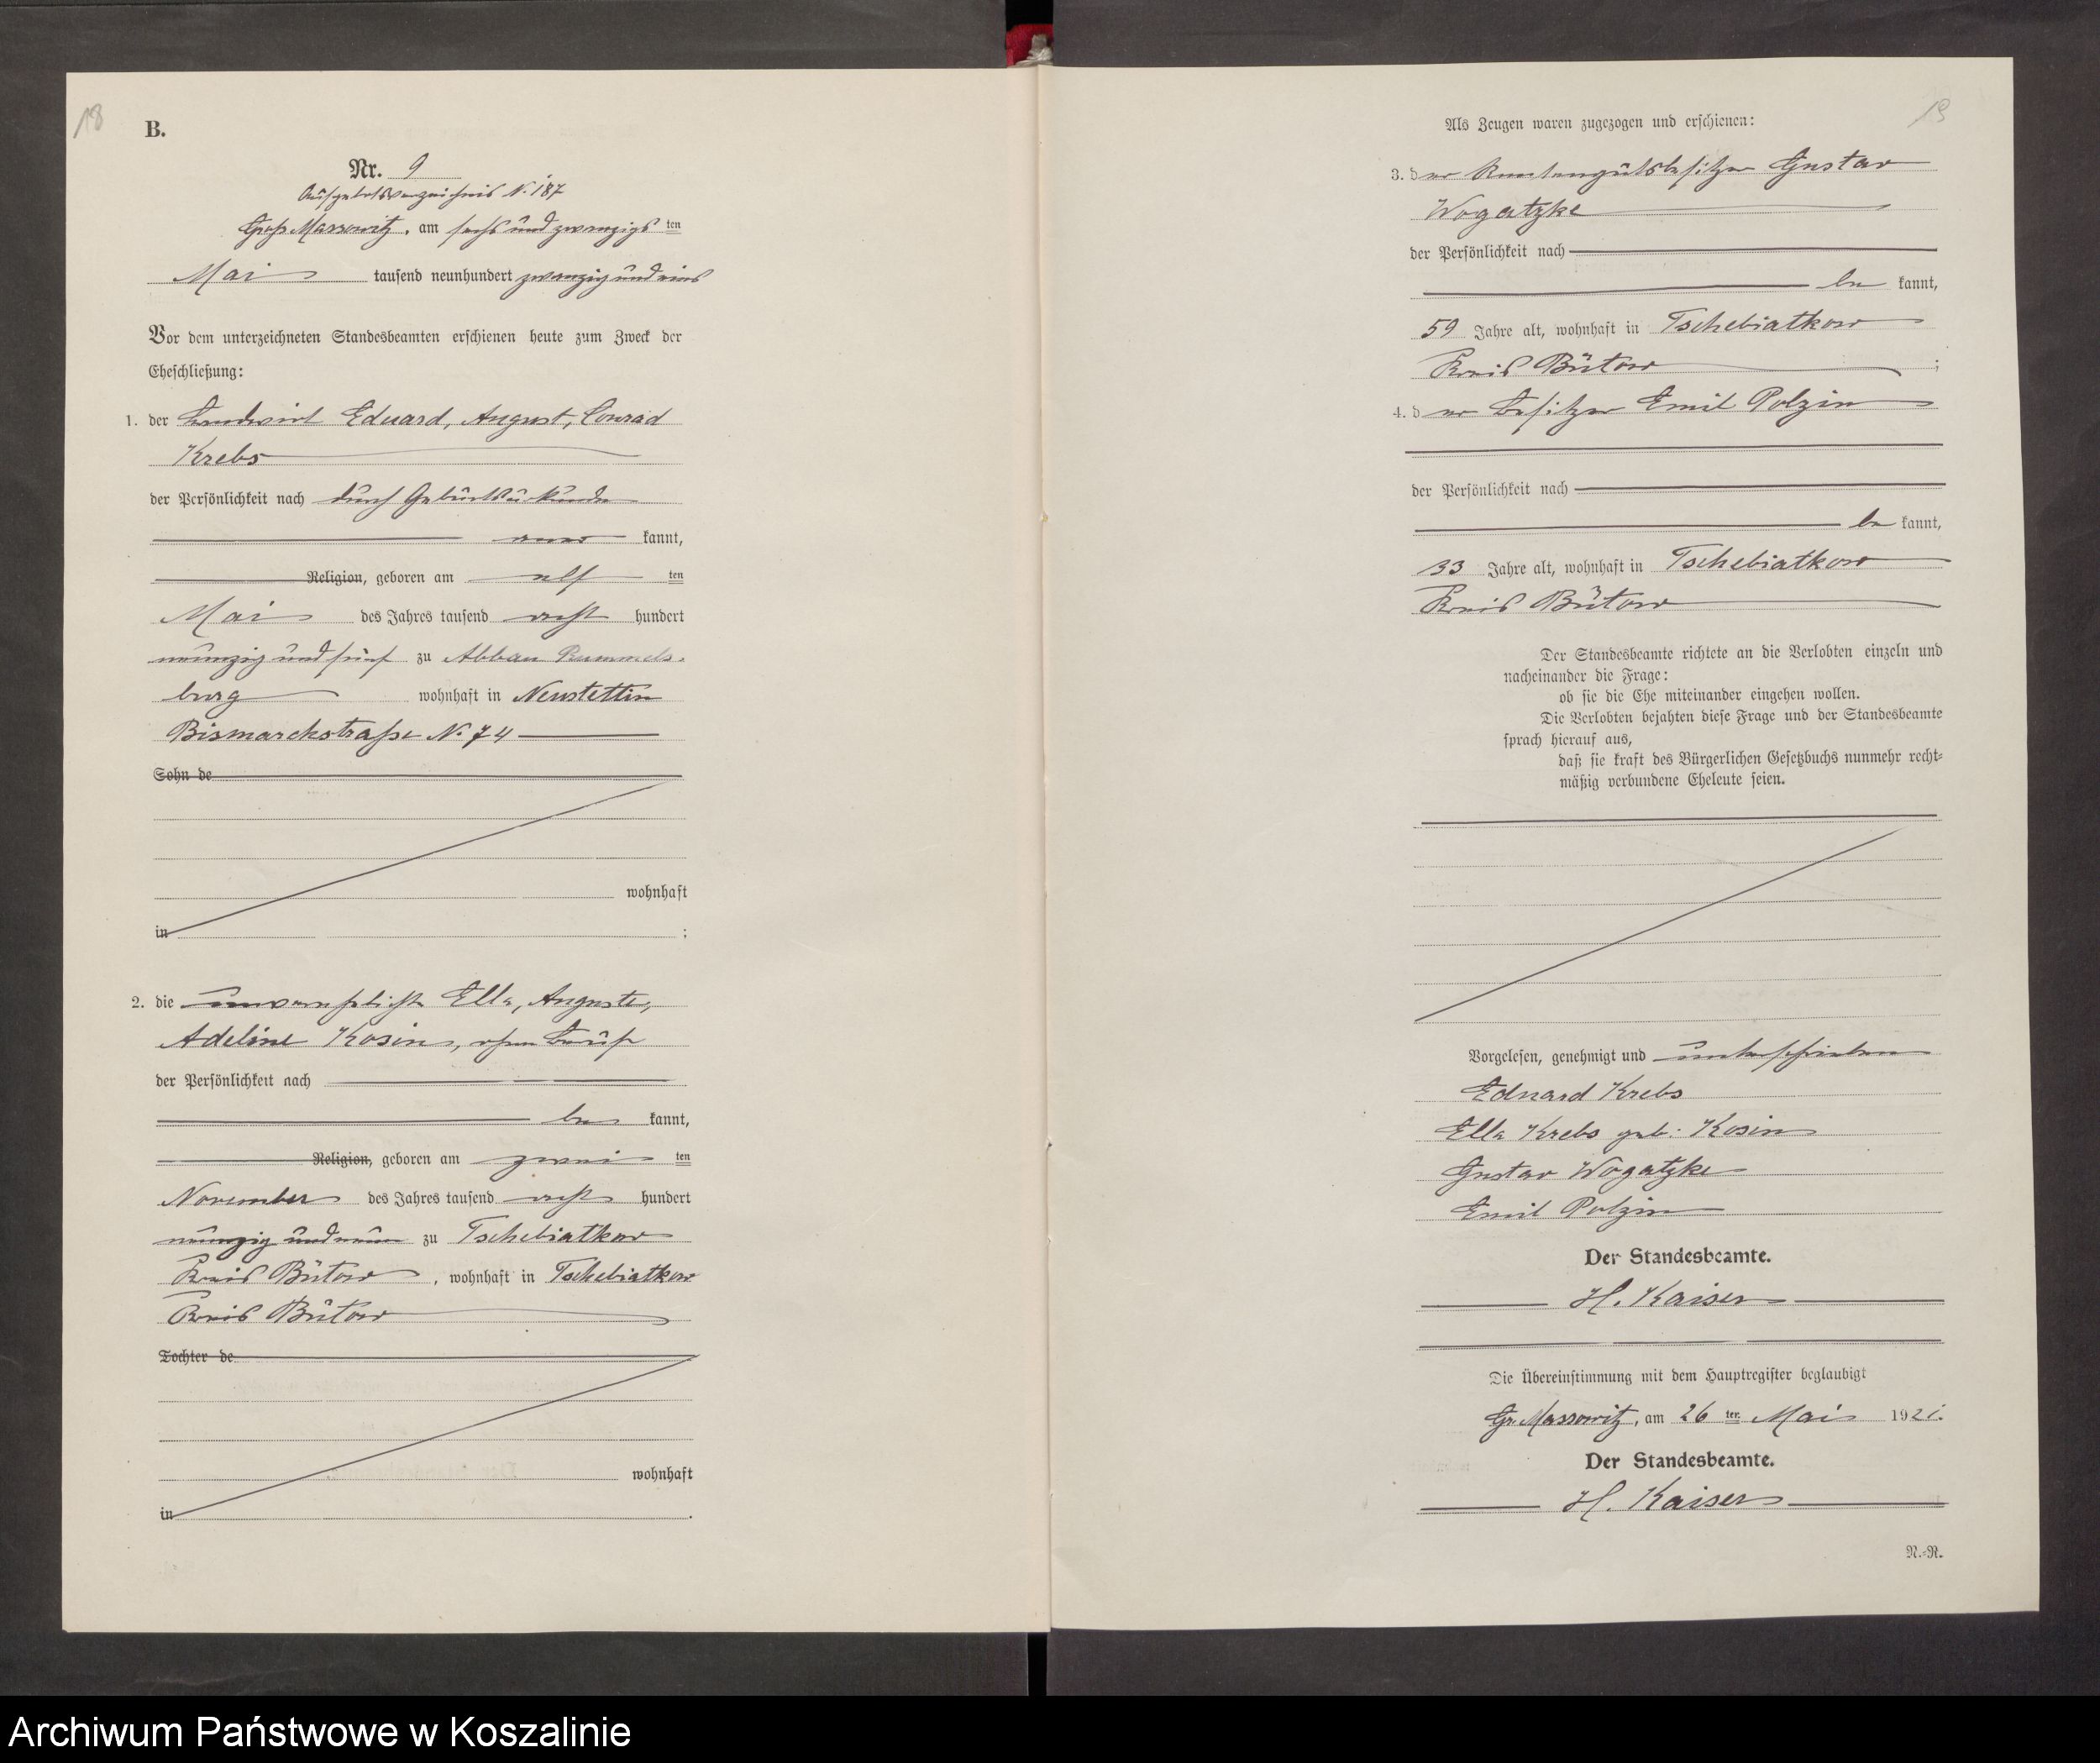 18
B.
Nr. 9
Aufgebotsverzeichnis N. 187
Groß Massowitz, am sechs und zwanzigs ten
Mai tausend neunhundert zwanzig und eins
Vor dem unterzeichneten Standesbeamten erschienen heute zum Zweck der
Eheschließung:
1. der Landwirt Eduard, August, Conrad
Krebs
der Persönlichkeit nach durch Geburtsurkunde
aner kannt,
Religion, geboren am elf ten
Mai des Jahres tausend acht hundert
neunzig und fünf zu Abbau Rummels-
burg wohnhaft in Neustettin
Bismarckstraße N. 74
Sohn de
wohnhaft
in ;
2. die unverehelichte Ella, Auguste,
Adeline Kosin, ohne Beruf
der Persönlichkeit nach
be kannt,
Religion, geboren am zwei ten
November des Jahres tausend acht hundert
neunzig und neun zu Tschebiatkow
Kreis Bütow, wohnhaft in Tschebiatkow
Kreis Bütow
Tochter de
wohnhaft
in .
19
Als Zeugen waren zugezogen und erschienen:
3. der Rentengutsbesitzer Gustav
Wogatzke
der Persönlichkeit nach
be kannt,
59 Jahre alt, wohnhaft in Tschebiatkow
Kreis Bütow ;
4. der Besitzer Emil Polzin
der Persönlichkeit nach
be kannt,
33 Jahre alt, wohnhaft in Tschebiatkow
Kreis Bütow
Der Standesbeamte richtete an die Verlobten einzeln und
nacheinander die Frage:
ob sie die Ehe miteinander eingehen wollen.
Die Verlobten bejahten diese Frage und der Standesbeamte
sprach hierauf aus,
daß sie kraft des Bürgerlichen Gesetzbuchs nunmehr recht-
mäßig verbundene Eheleute seien.
Vorgelesen, genehmigt und unterschrieben
Eduard Krebs
Ella Krebs geb. Kosin
Gustav Wogatzke
Emil Polzin
Der Standesbeamte.
H. Kaiser
Die Übereinstimmung mit dem Hauptregister beglaubigt
Gr. Massowitz, am 26 ten Mai 1921.
Der Standesbeamte.
H. Kaiser
N.-R.
Archiwum Państwowe w Koszalinie